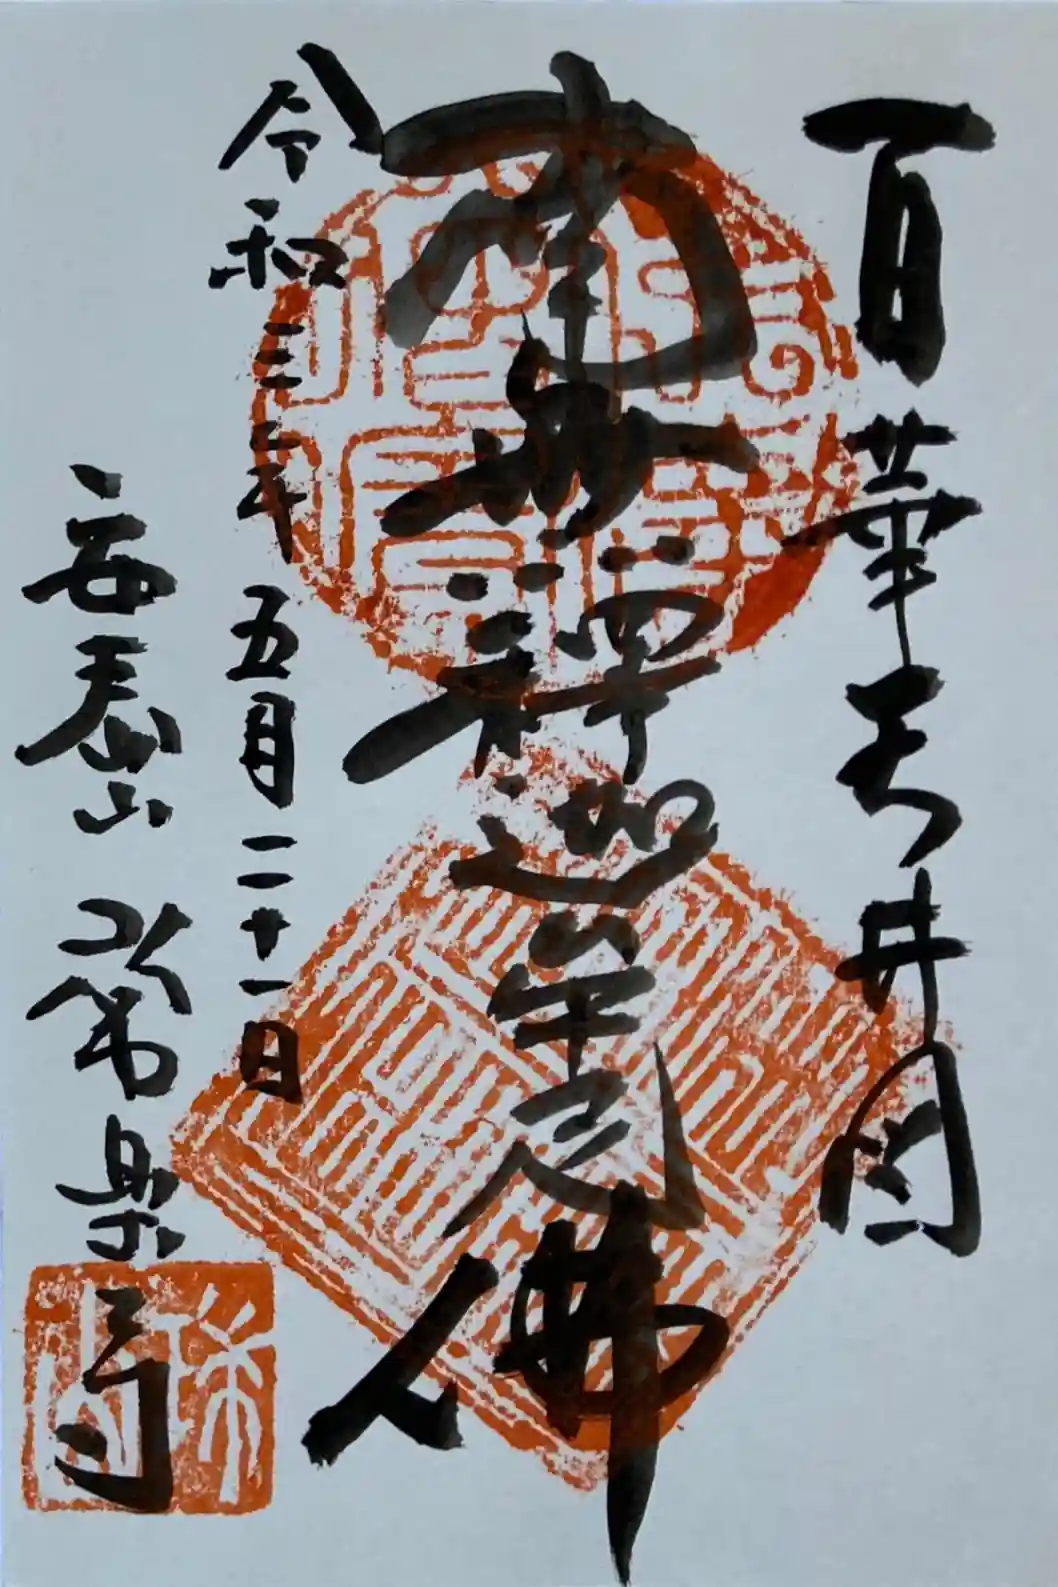 百華天井図
南無釋迦牟尼佛
令和三年
五月二十一日
安泰山
常楽寺